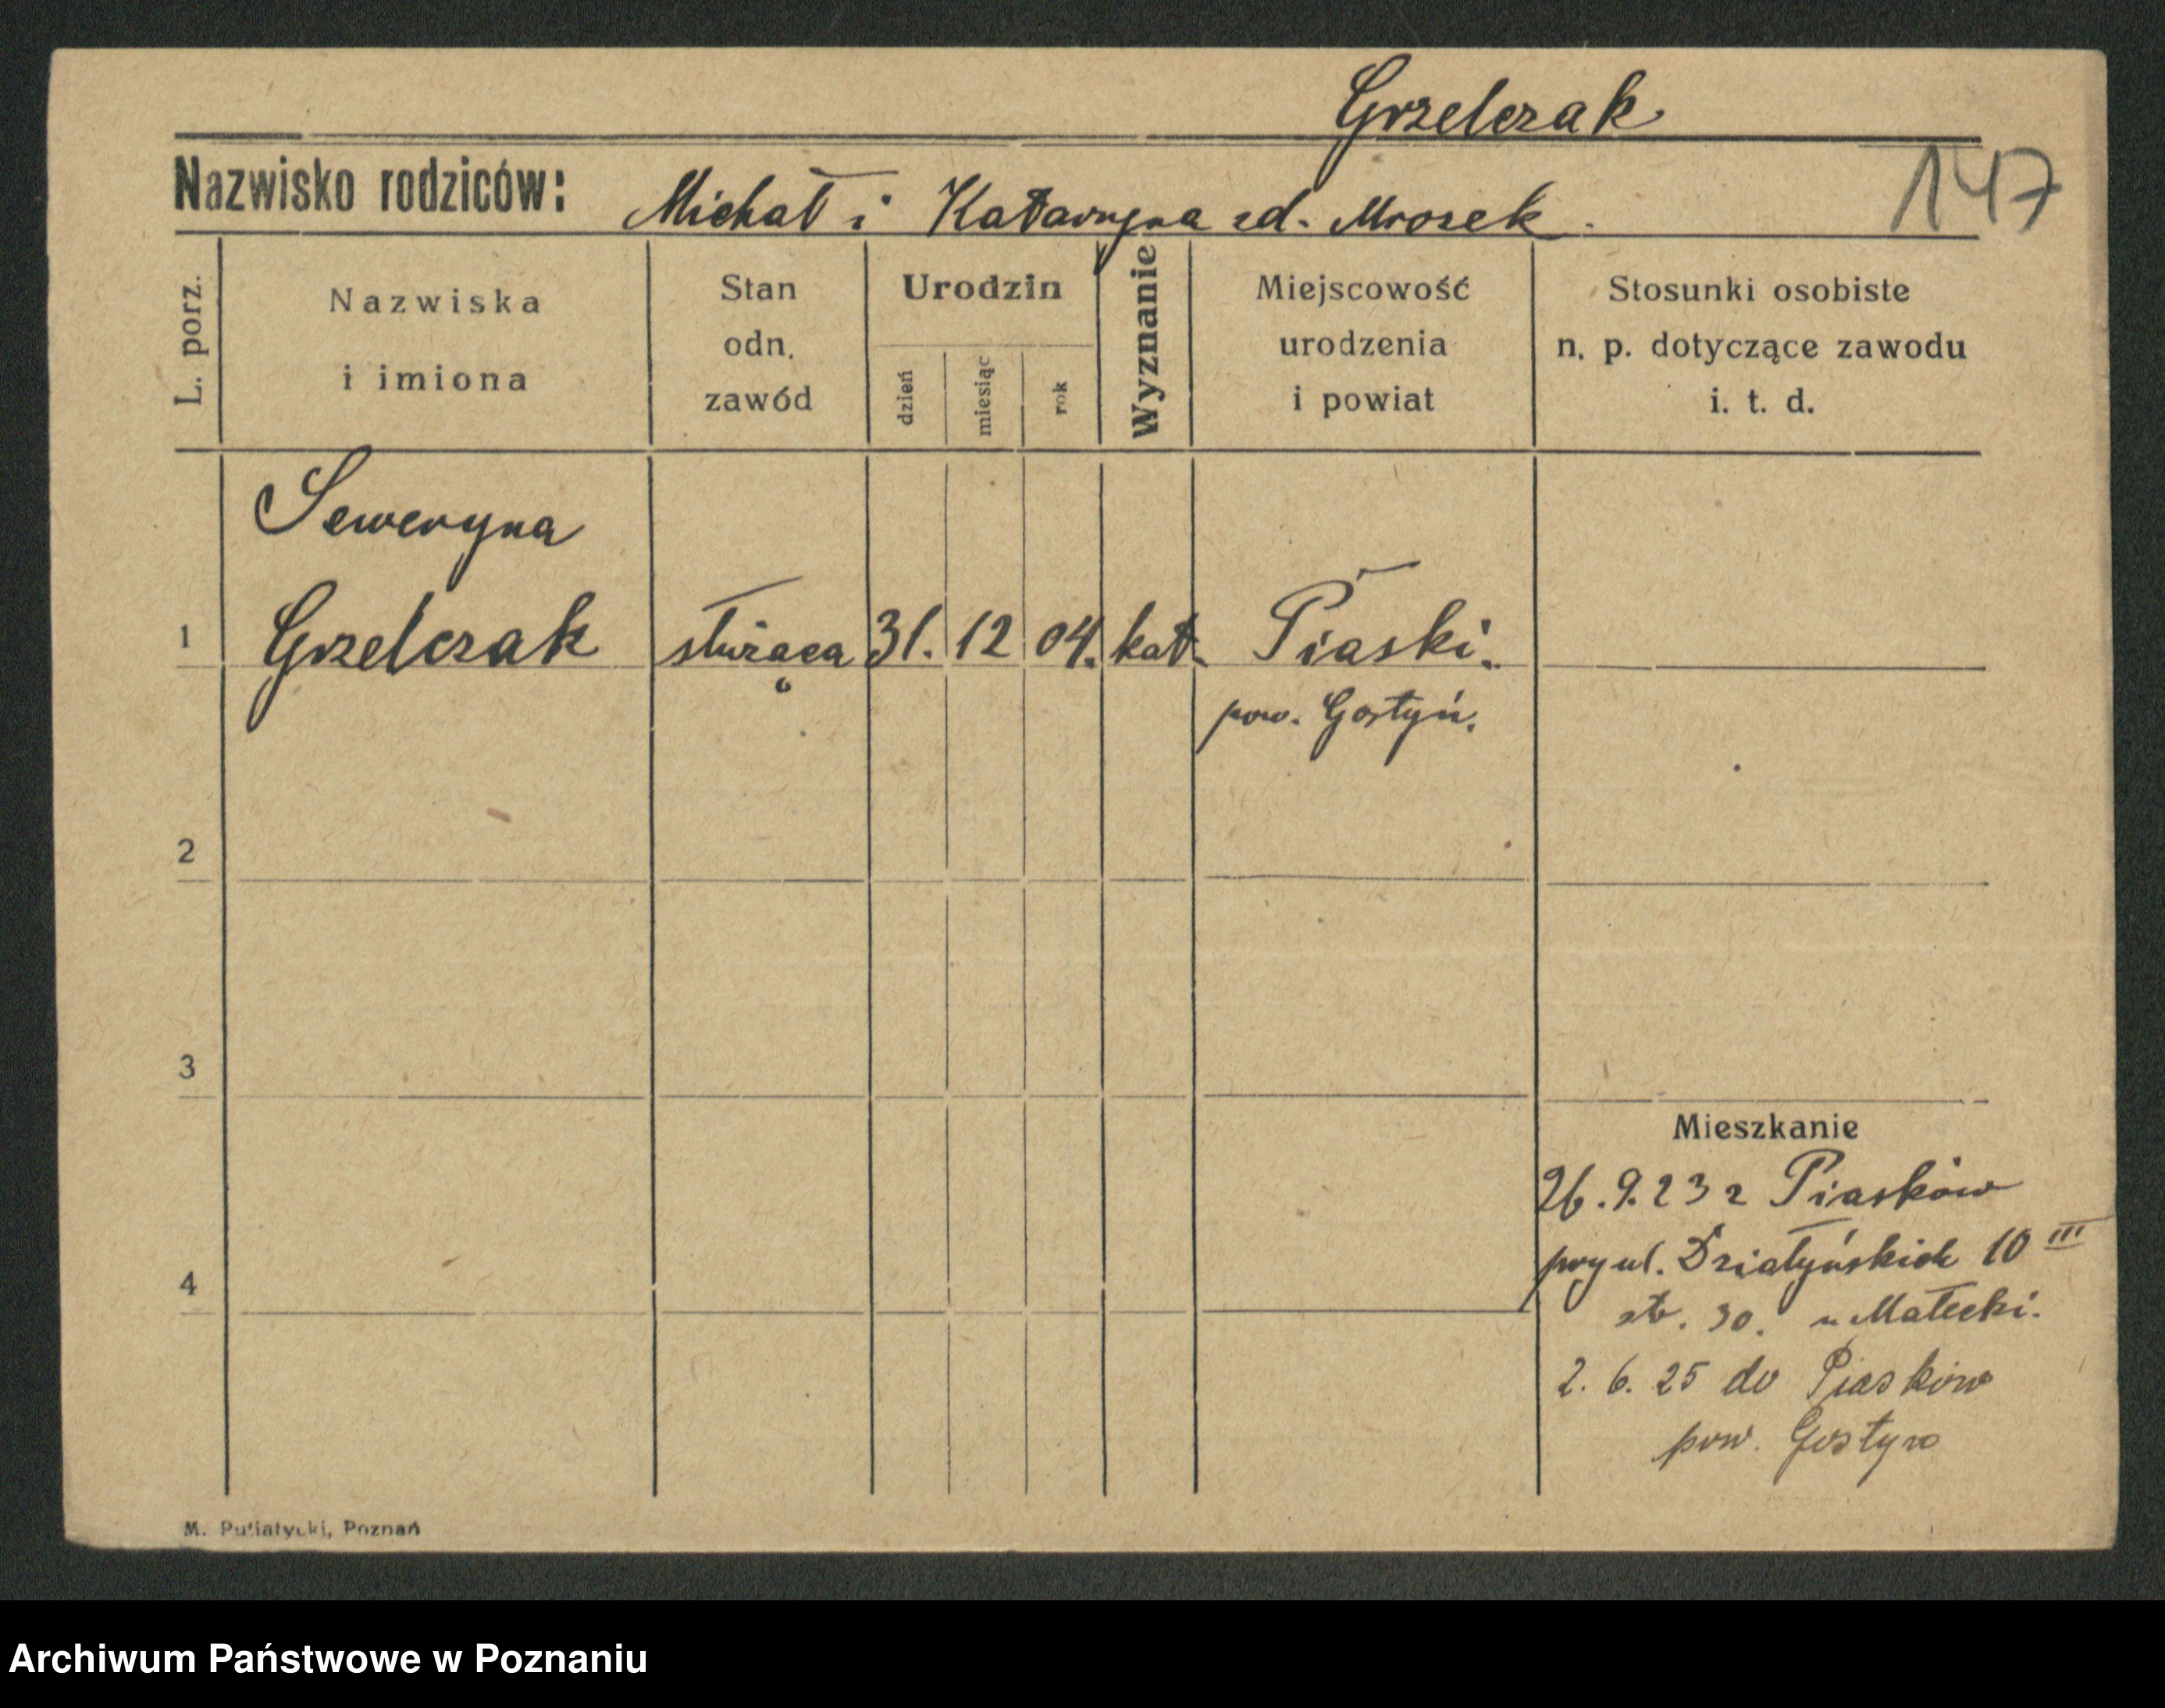 Grzelczak
Nazwisko rodziców: Michał i Katarzyna zd. Mrozek.
147
L. porz.
Nazwiska
i imiona
Stan
odn.
zawód
Urodzin
dzień
miesiąc
rok
Wyznanie
Miejscowość
urodzenia
i powiat
Stosunki osobiste
n. p. dotyczące zawodu
i. t. d.
Seweryna
1 Grzelczak służąca 31. 12 04. kat. Piaski.
pow. Gostyń.
2
3
4
Mieszkanie
26.9.23 z Piasków
przy ul. Działyńskich 10 III
str. 30. u Małecki.
2. 6. 25 do Piasków
pow. Gostyn
M. Putiatycki, Poznań
Archiwum Państwowe w Poznaniu